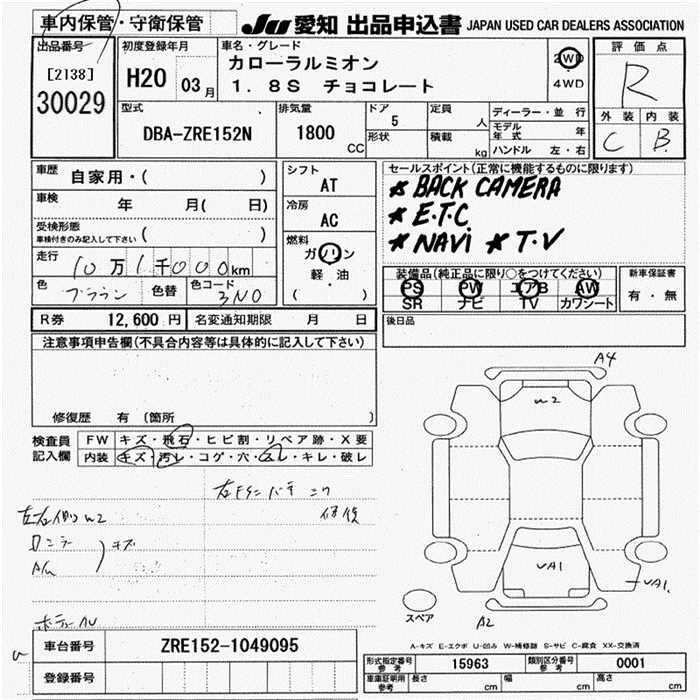 車内保管・守衛保管
JU 愛知 出品申込書 JAPAN USED CAR DEALERS ASSOCIATION
出品番号
[2138]
30029
初度登録年月
H20 03月
車名・グレード
カローラルミオン
1.8S チョコレート
2WD
4WD
評価点
R
外装 内装
C B
型式
DBA-ZRE152N
排気量
1800 CC
ドア
5
形状
定員
人
積載
kg
ディーラー・並行
モデル年式 年
ハンドル 左・右
車歴 自家用・( )
車検 年 月( 日)
受検形態
車検付きのみ記入して下さい ( )
走行 10万1千000km
色 ブラウン 色替 色コード 3N0
シフト
AT
冷房
AC
燃料
ガソリン
軽・油
( )
セールスポイント(正常に機能するものに限ります)
★ BACK CAMERA
★ E.T.C
★ NAVi ★ T.V
装備品(純正品に限り○をつけてください)
PS PW エアB AW
SR ナビ TV カワシート
新車保証書
有・無
R券 12,600円 名変通知期限 月 日
後日品
注意事項申告欄(不具合内容等は具体的に記入して下さい)
修復歴 有(箇所 )
検査員記入欄
FW キズ・飛石・ヒビ割・リペア跡・X要
内装 キズ・汚レ・コゲ・穴・スレ・キレ・破レ
左右 W2
キズ
A4
W2
VA1
VA1
A2
スペア
A-キズ E-エクボ U-凹み W-補修跡 S-サビ C-腐食 XX-交換済
車台番号 ZRE152-1049095
登録番号
形式指定番号参考 15963 類別区分番号参考 0001
車庫証明用参考 長さ cm 幅 cm 高さ cm